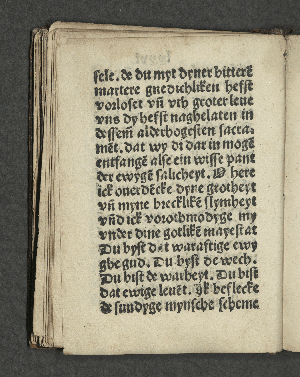 sele. de du myt dyner bitterē
martere gnedichliken hefst
vorloset vñ vth groter leue
vns dy hefst naghelaten in
dessem alderhogesten sacra-
mēt. dat wy di dar in mogē
entfangē alse ein wisse pant
der ewygē salicheyt. O here
ick ouerdēcke dyne grotheyt
vñ myne brecklikē slymheyt
vñd ick vorothmodyge my
vnder dine gotlikē mayestat
Du byst dat waraftige ewy
ghe gud. Du byst de wech.
Du bist de warheyt. Du bist
dat ewige leuēt. Ik beflecke
de sundyge mynsche scheme